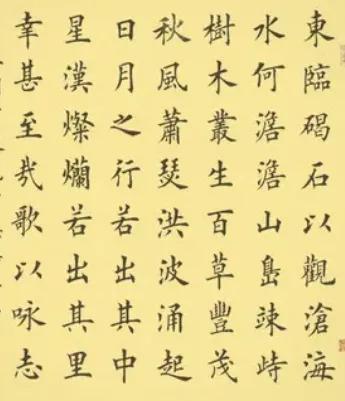 東臨碣石以觀滄海
水何澹澹山島竦峙
樹木叢生百草豐茂
秋風蕭瑟洪波涌起
日月之行若出其中
星漢燦爛若出其里
幸甚至哉歌以咏志